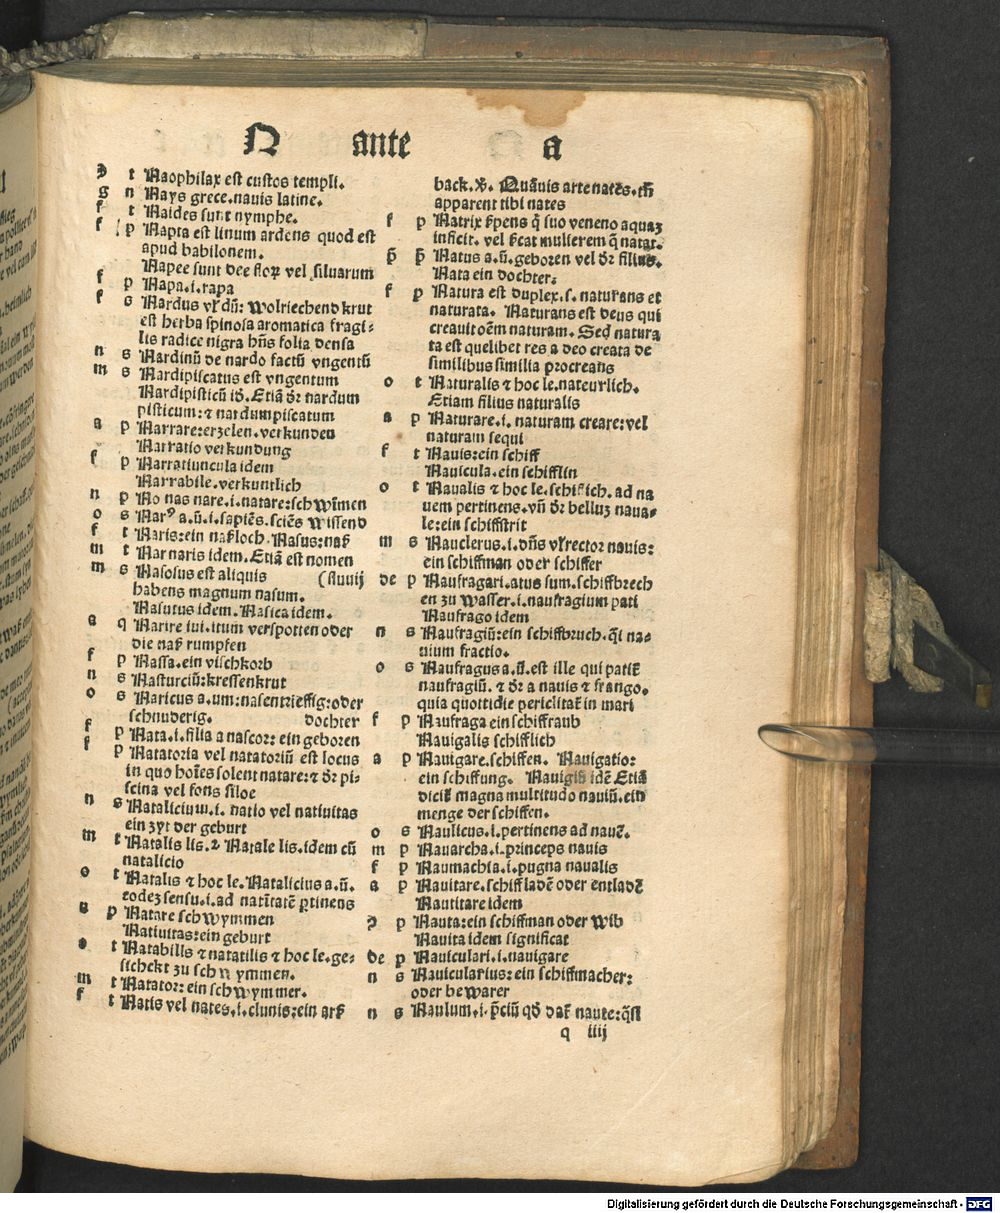 N ante a
ꝫ t Naophilax est custos templi.
g n Nays grece.nauis latine.
f t Naides sunt nymphe.
f p Napta est linum ardens quod est
apud babilonem.
Napee sunt dee floꝝ vel siluarum
f p Napa.i.rapa
f s Nardus vľ dū: wolriechend krut
est herba spinosa aromatica fragi-
lis radice nigra hn̄s folia densa
n s Nardinū de nardo factū vngentū
m s Nardipiscatus est vngentum
Nardipisticū id. Etiā dr̄ nardum
pisticum: ⁊ nardum piscatum
a p Narrare: erzelen.verkunden
Narratio verkundung
f p Narratiuncula idem
Narrabile.verkuntlich
n p No nas nare.i.natare: schwim̄en
o s Narꝰ a.ū.i.sapiēs.sciēs wissend
f t Naris: ein naßloch. Nasus: naß
m t Nar naris idem. Etiā est nomen
m s Nasosus est aliquis (fluuij
habens magnum nasum.
Nasutus idem. Nasica idem.
a q Narire iui.itum verspotten oder
die naß rumpfen
f p Nassa.ein vischkorb
n s Nasturciū: kressenkrut
o s Naricus a.um: nasentrieffig: oder
schnuderig. dochter
f p Nata.i.filia a nascor: ein geboren
f p Natatoria vel natatoriū est locus
in quo hoīes solent natare: ⁊ dr̄ pi-
scina vel fons siloe
n s Natalicium.i. natio vel natiuitas
ein zyt der geburt
m t Natalis lis. ⁊ Natale lis.idem cū
natalicio
o t Natalis ⁊ hoc le. Natalicius a.ū.
eodez sensu.i.ad natītatē ꝑtinens
a p Natare schwymmen
Natiuitas: ein geburt
o t Natabilis ⁊ natatilis ⁊ hoc le.ge-
schickt zu schwymmen.
m t Natator: ein schwymmer.
f t Natis vel nates.i.clunis: ein arß
back. Quāuis arte natēs.
apparent tibi nates
f p Natrix ẜpens q̄ suo veneno aquaz
inficit. vel ẜcat mulierem q̄ natat.
p̄ p̄ Natus a.ū.geboren vel dr̄ filius.
Nata ein dochter.
f p Natura est duplex.s. naturans et
naturata. Naturans est deus qui
creauit oēm naturam. Sed natura
ta est quelibet res a deo creata de
similibus similia procreans
o t Naturalis ⁊ hoc le.nateurlich.
Etiam filius naturalis
a p Naturare.i. naturam creare: vel
naturam sequi
f t Nauis: ein schiff
Nauicula.ein schifflin
o t Naualis ⁊ hoc le.schiflich. ad na
uem pertinens. vn̄ dr̄ belluz naua-
le: ein schiffstrit
m s Nauclerus.i.dn̄s vľ rector nauis:
ein schiffman oder schiffer
de p Naufragari.atus sum.schiffbrech
en zu wasser.i.naufragium pati
Naufrago idem
n s Naufragiū: ein schiffbruch.q̄si na-
uium fractio.
o s Naufragus a.ū.est ille qui patit̄
naufragiū. ⁊ dr̄ a nauis ⁊ frango.
quia quottidie periclitat̄ in mari
f p Naufraga ein schiffraub
Nauigalis schifflich
a p Nauigare.schiffen. Nauigatio:
ein schiffung. Nauigiū idē Etiā
dicit̄ magna multitudo nauiū.ein
menge der schiffen.
o s Naulicus.i.pertinens ad nauē.
m p Nauarcha.i.princeps nauis
f p Naumachia.i.pugna naualis
a p Nauitare.schiff ladē oder entladē
Nautitare idem
ꝫ p Nauta: ein schiffman oder wib
Nauita idem significat
de p Nauiculari.i.nauigare
n s Nauicularius: ein schiffmacher:
oder bewarer
n s Naulum.i.p̄ciū qd̄ dat̄ naute: q̄si
q iiij
Digitalisierung gefördert durch die Deutsche Forschungsgemeinschaft - DFG